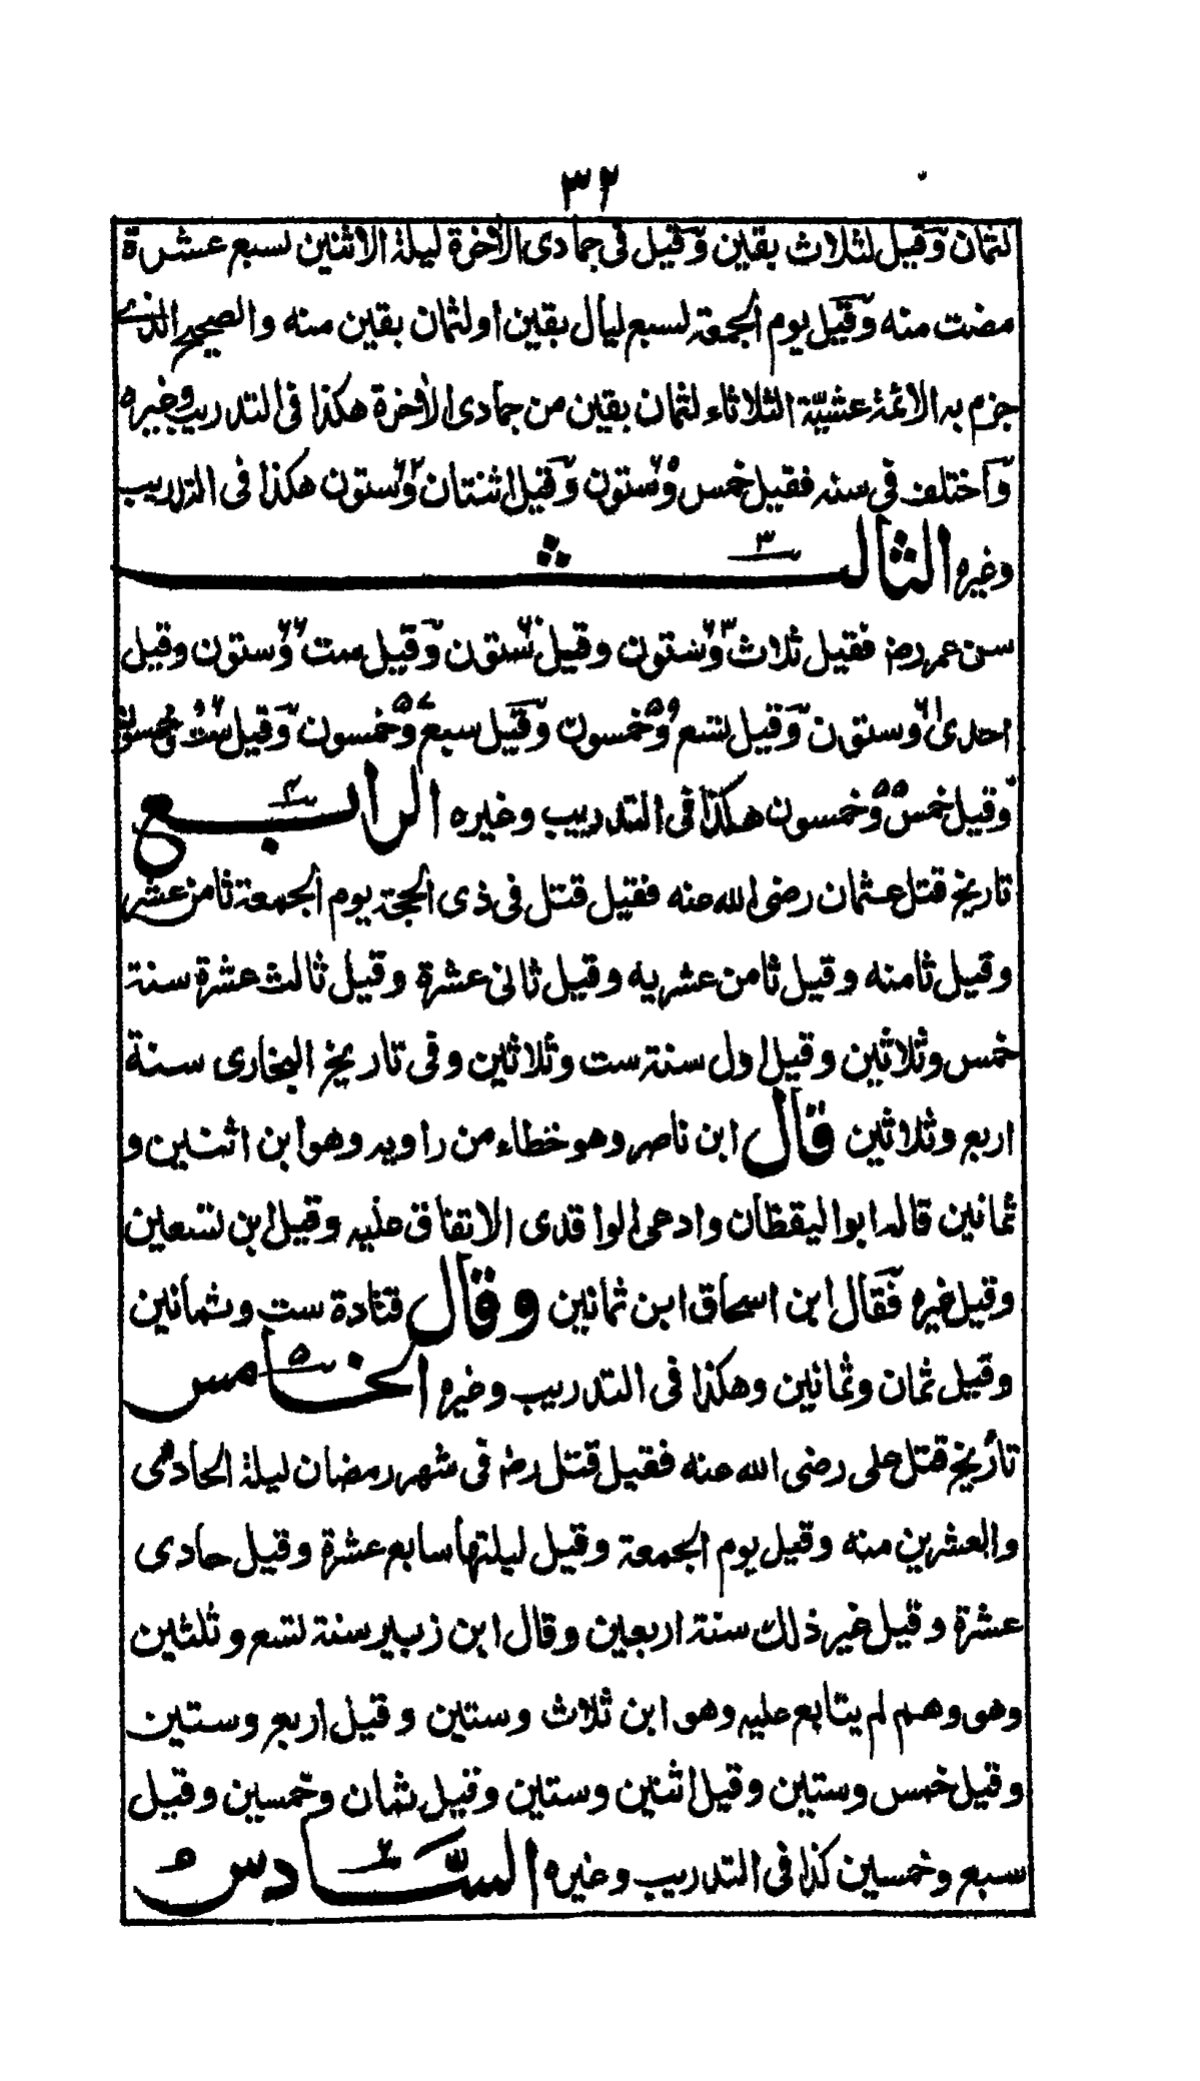 ٣٢
لثمان وقيل لثلاث بقين وقيل فى جمادى الاخرة ليلة الاثنين لسبع عشرة
مضت منه وقيل يوم الجمعة لسبع ليال بقين او لثمان بقين منه والصحيح الذى
جزم به الائمة عشيّة الثلاثاء لثمان بقين من جمادى الاخرة هكذا فى التدريب وغيره
واختلف فى سنه فقيل خمس وستون وقيل اثنتان وستون هكذا فى التدريب
وغيره الثالث ٣
سن عمر رضـ فقيل ثلاث وستون وقيل ستون وقيل ست وستون وقيل
احدى وستون وقيل تسع وخمسون وقيل سبع وخمسون وقيل ست وخمسون
وقيل خمس وخمسون هكذا فى التدريب وغيره الرابع ٤
تاريخ قتل عثمان رضى الله عنه فقيل قتل فى ذى الحجة يوم الجمعة ثامن عشر
وقيل ثامنه وقيل ثامن عشريه وقيل ثانى عشرة وقيل ثالث عشرة سنة
خمس وثلاثين وقيل اول سنة ست وثلاثين وفى تاريخ البخارى سنة
اربع وثلاثين قال ابن ناصر وهو خطاء من راويه وهو ابن اثنين و
ثمانين قاله ابو اليقظان وادعى الواقدى الاتفاق عليه وقيل ابن تسعين
وقيل غيره فقال ابن اسحاق ابن ثمانين وقال قتادة ست وثمانين
وقيل ثمان وثمانين وهكذا فى التدريب وغيره الخامس ٥
تاريخ قتل على رضى الله عنه فقيل قتل رضـ فى شهر رمضان ليلة الحادى
والعشرين منه وقيل يوم الجمعة وقيل ليلتها سابع عشرة وقيل حادى
عشرة وقيل غير ذلك سنة اربعين وقال ابن زبير سنة تسع وثلثين
وهو وهم لم يتابع عليه وهو ابن ثلاث وستين وقيل اربع وستين
وقيل خمس وستين وقيل اثنين وستين وقيل ثمان وخمسين وقيل
سبع وخمسين كذا فى التدريب وغيره السّادس